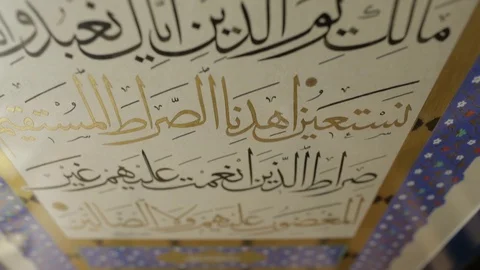 مالك يوم الدين اياك نعبدوا
نستعين اهدنا الصراط المستقيم
صراط الذين انعمت عليهم غير
المغضوب عليهم ولا الضالين